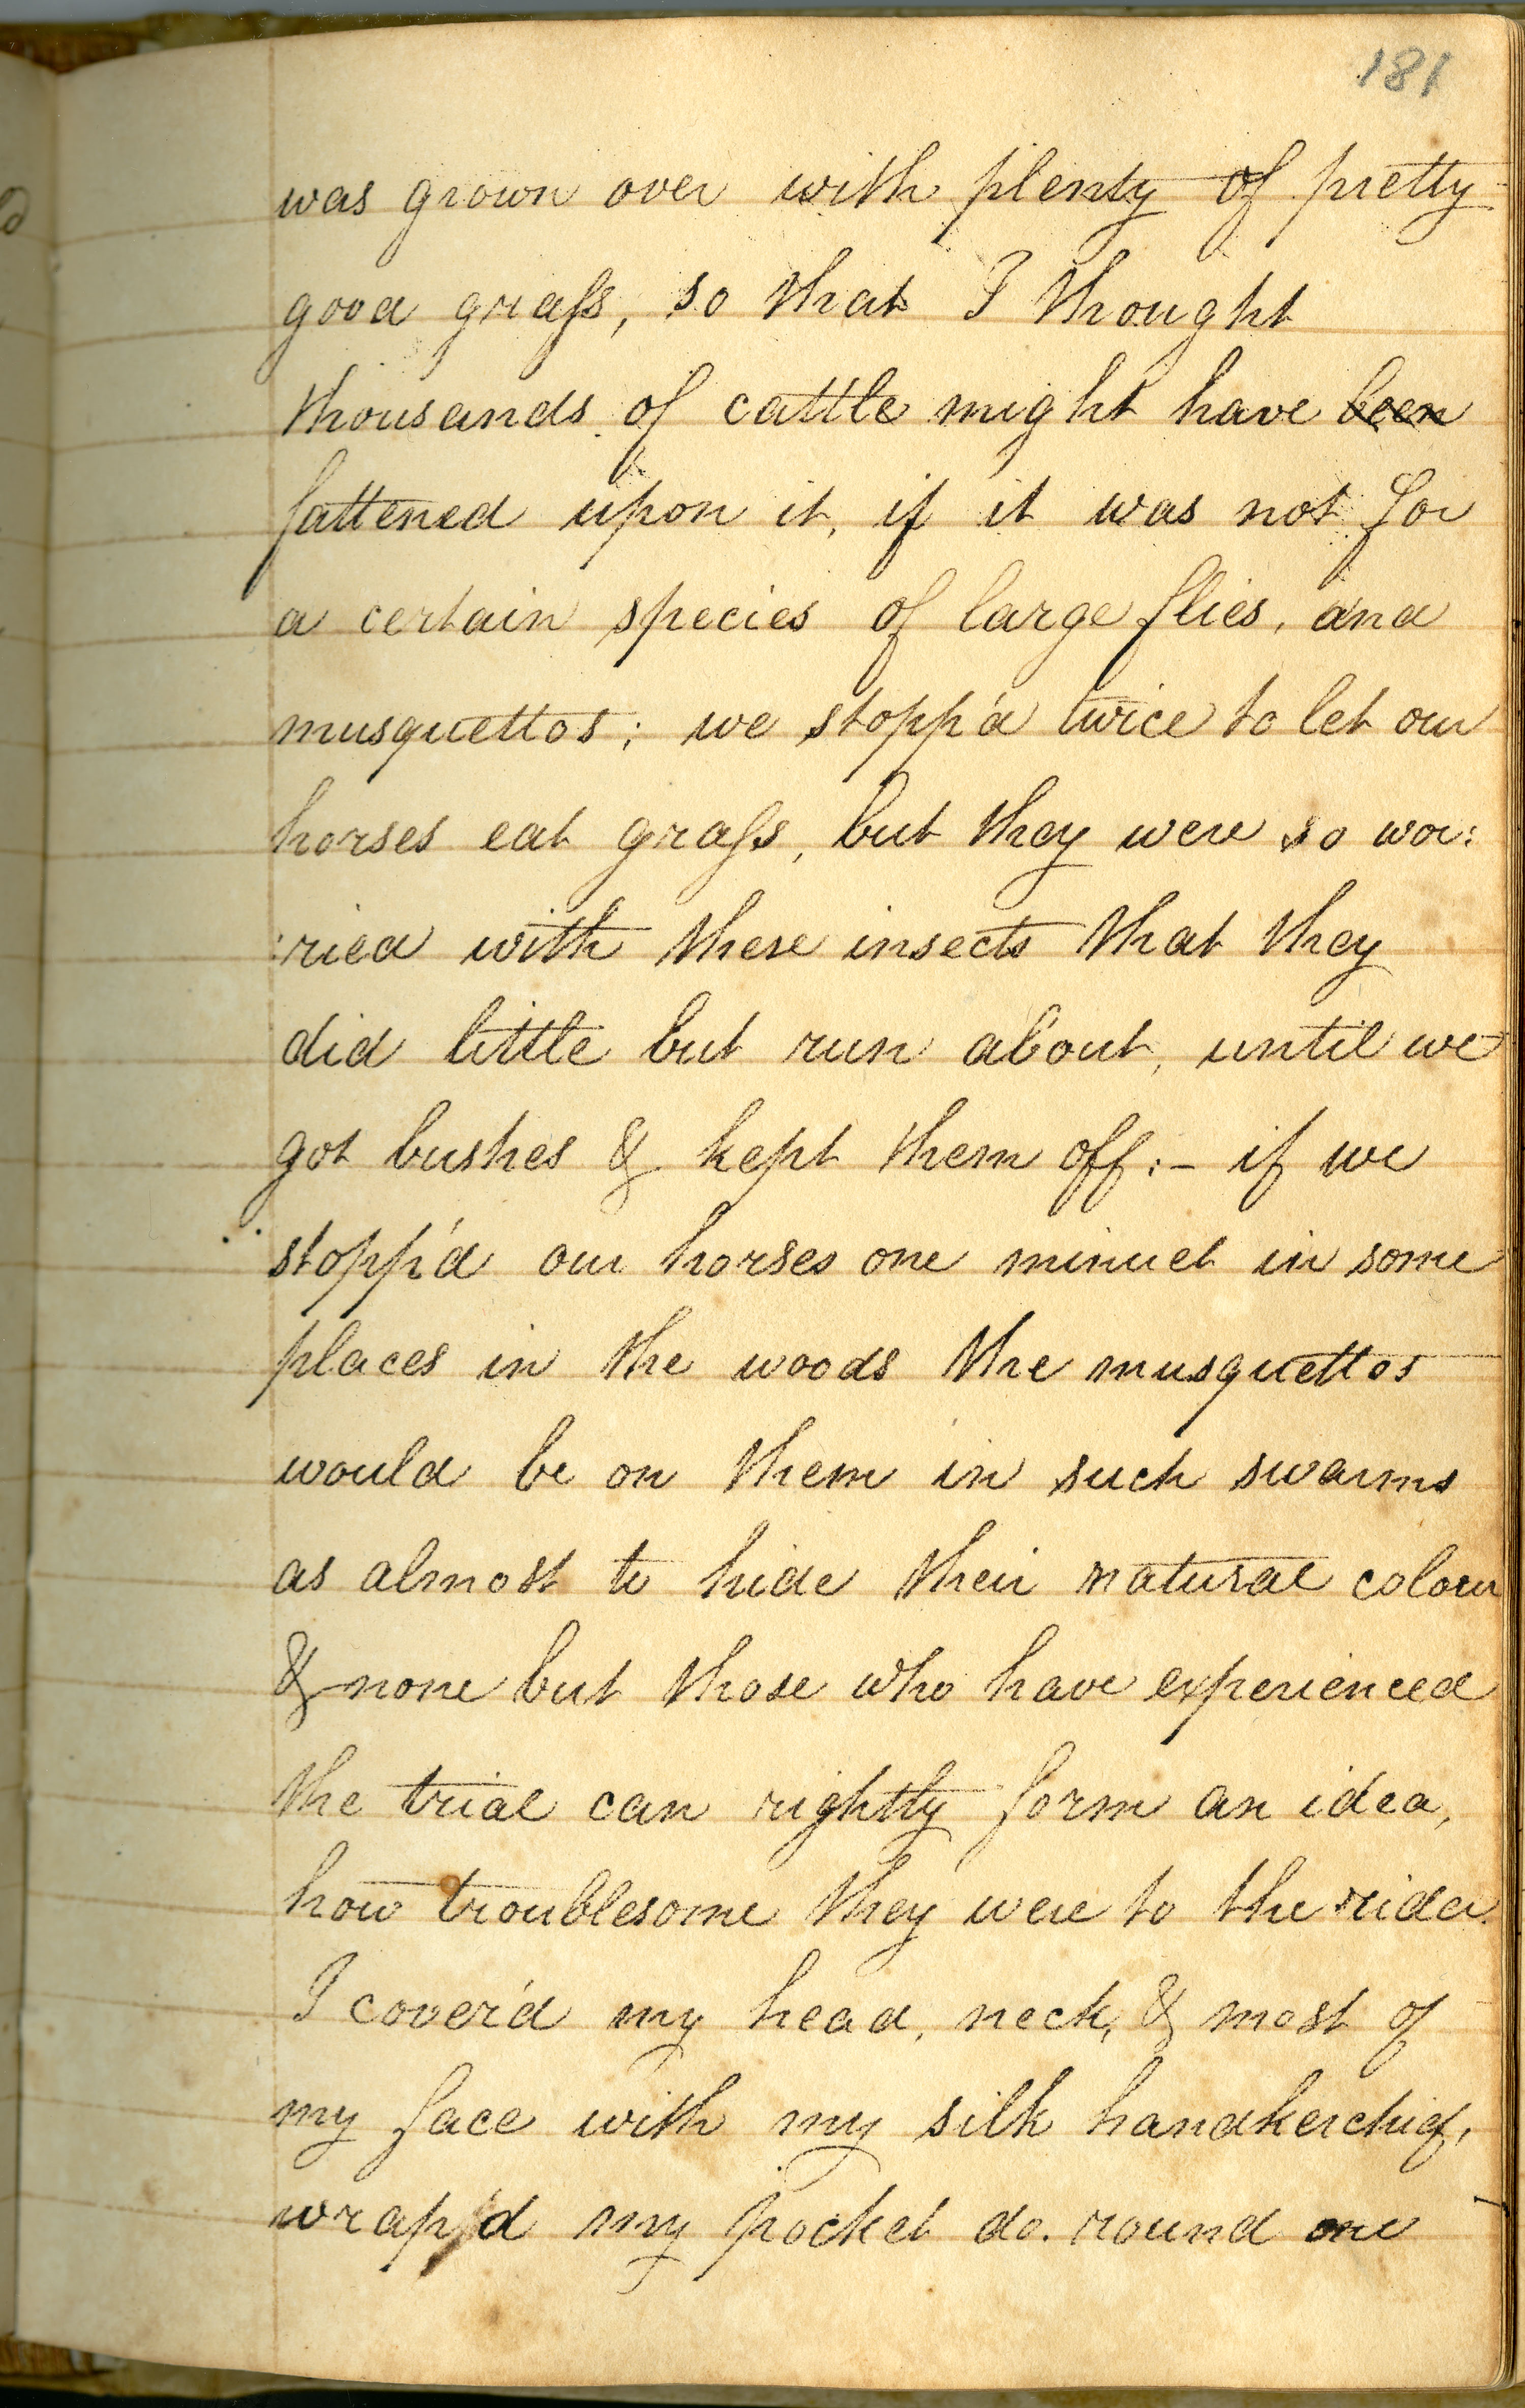 181
was grown over with plenty of pretty
good graſs, so that I thought
thousands of cattle might have been
fattened upon it, if it was not for
a certain species of large flies, and
musquettos; we stopp'd twice to let our
horses eat graſs, but they were so wor:
:ried with these insects that they
did little but run about, until we
got bushes & kept them off:- if we
stopp'd our horses one minuet in some
places in the woods the musquettos
would be on them in such swarms
as almost to hide their natural colour
& none but those who have experienced
the trial can rightly form an idea,
how troublesome they were to the rider.
I cover'd my head, neck, & most of
my face with my silk handkerchief,
wrap'd my pocket do. round one